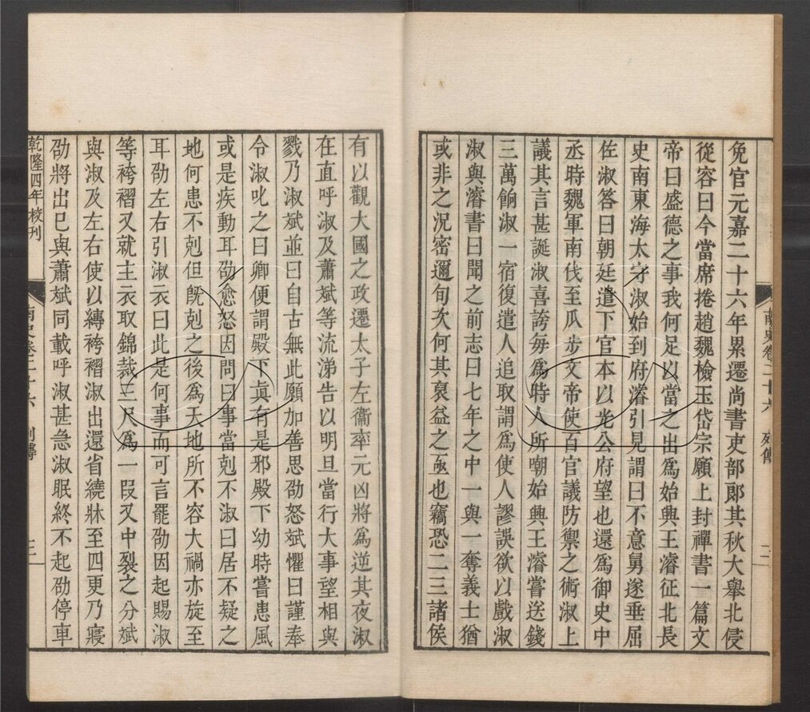 免官元嘉二十六年累遷尚書吏部郎其秋大舉北侵
從容曰今當席捲趙魏檢玉岱宗願上封禪書一篇文
帝曰盛德之事我何足以當之出爲始興王濬征北長
史南東海太守淑始到府濬引見謂曰不意舅遂垂屈
佐淑答曰朝廷遣下官本以光公府望也還爲御史中
丞時魏軍南伐至瓜步文帝使百官議防禦之術淑上
議其言甚誕淑喜誇每爲時人所嘲始興王濬嘗送錢
三萬餉淑一宿復遣人追取謂爲使人謬誤欲以戲淑
淑與濬書曰聞之前志曰七年之中一與一奪義士猶
或非之況密邇旬次何其裒益之亟也竊恐二三諸侯
有以觀大國之政遷太子左衞率元凶將爲逆其夜淑
在直呼淑及蕭斌等流涕告以明旦當行大事望相與
戮乃淑斌並曰自古無此願加善思劭怒斌懼曰謹奉
令淑叱之曰卿便謂殿下眞有是邪殿下幼時嘗患風
或是疾動耳劭愈怒因問曰事當剋不淑曰居不疑之
地何患不剋但旣剋之後爲天地所不容大禍亦旋至
耳劭左右引淑衣曰此是何事而可言罷劭因起賜淑
等袴褶又就主衣取錦裁三尺爲一段又中裂之分斌
與淑及左右使以縛袴褶淑出還省繞牀至四更乃寢
劭將出已與蕭斌同載呼淑甚急淑眠終不起劭停車
乾隆四年校刊
南史卷二十六 列傳